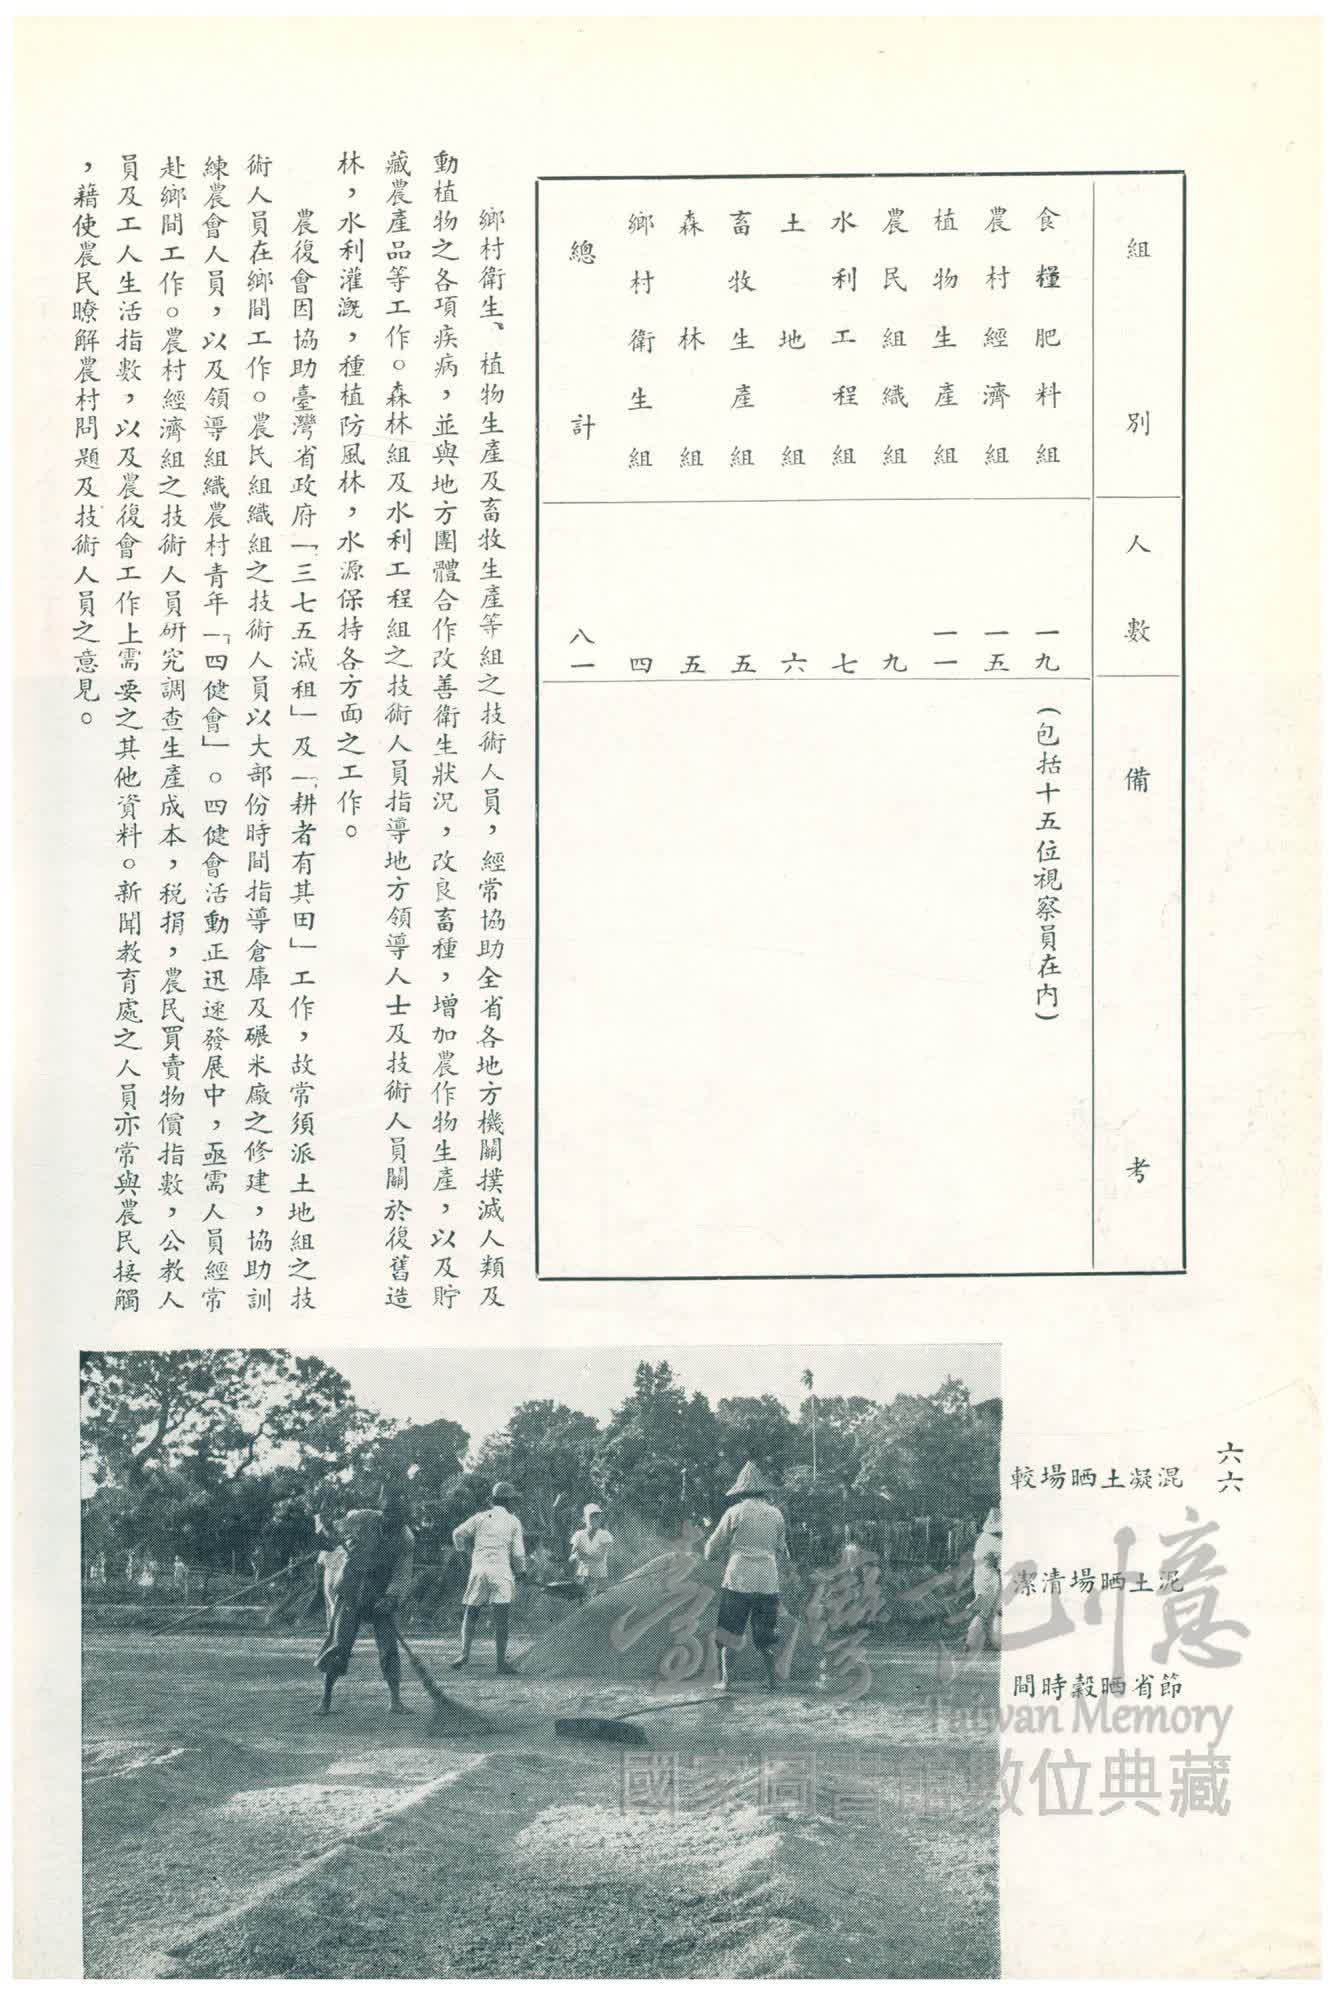 組別 人數 備考
食糧肥料組 一九 （包括十五位視察員在內）
農村經濟組 一五
植物生產組 一一
農民組織組 九
水利工程組 七
土地組 六
畜牧生產組 五
森林組 五
鄉村衛生組 四
總計 八一
鄉村衛生、植物生產及畜牧生產等組之技術人員，經常協助全省各地方機關撲滅人類及
動植物之各項疾病，並與地方團體合作改善衛生狀況，改良畜種，增加農作物生產，以及貯
藏農產品等工作。森林組及水利工程組之技術人員指導地方領導人士及技術人員關於復舊造
林，水利灌漑，種植防風林，水源保持各方面之工作。
農復會因協助臺灣省政府「三七五減租」及「耕者有其田」工作，故常須派土地組之技
術人員在鄉間工作。農民組織組之技術人員以大部份時間指導倉庫及碾米廠之修建，協助訓
練農會人員，以及領導組織農村青年「四健會」。四健會活動正迅速發展中，亟需人員經常
赴鄉間工作。農村經濟組之技術人員研究調查生產成本，稅捐，農民買賣物價指數，公教人
員及工人生活指數，以及農復會工作上需要之其他資料。新聞教育處之人員亦常與農民接觸
，藉使農民瞭解農村問題及技術人員之意見。
六六
混凝土晒場較
泥土晒場清潔
節省晒穀時間
臺灣記憶
Taiwan Memory
國家圖書館數位典藏